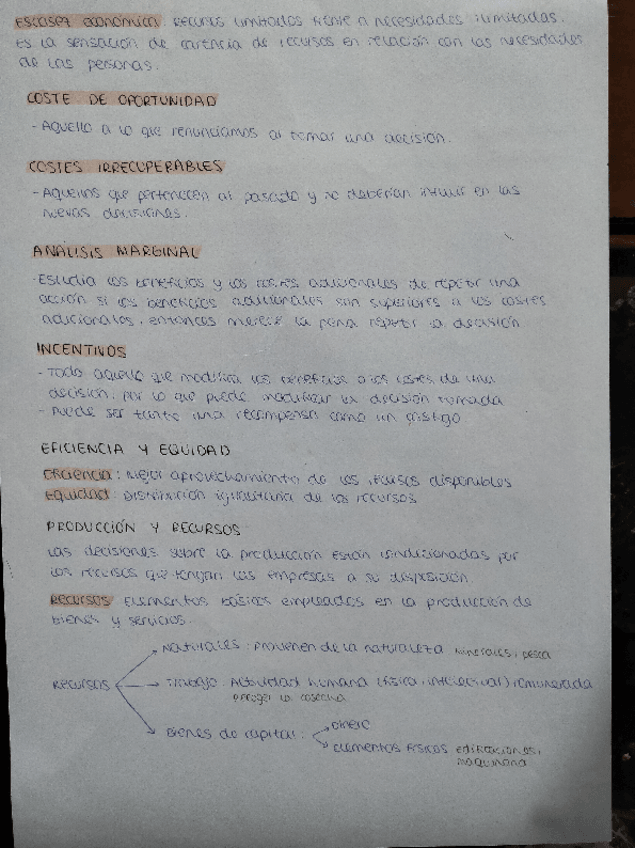 ESCASEZ económica: Recursos limitados frente a necesidades ilimitadas.
Es la sensación de carencia de recursos en relación con las necesidades
de las personas.
COSTE DE OPORTUNIDAD
- Aquello a lo que renunciamos al tomar una decisión.
COSTES IRRECUPERABLES
- Aquellos que pertenecen al pasado y no deberían influir en las
nuevas decisiones.
ANÁLISIS MARGINAL
- Estudia los beneficios y los costes adicionales de repetir una
acción si los beneficios adicionales son superiores a los costes
adicionales, entonces merece la pena repetir la decisión
INCENTIVOS
- Todo aquello que modifica los beneficios o los costes de una
decisión, por lo que puede modificar la decisión tomada
- Puede ser tanto una recompensa como un castigo
EFICIENCIA Y EQUIDAD
Eficiencia: Mejor aprovechamiento de los recursos disponibles
Equidad: Distribución igualitaria de los recursos
PRODUCCIÓN Y RECURSOS
Las decisiones sobre la producción están condicionadas por
los recursos que tengan las empresas a su disposición.
Recursos: Elementos básicos empleados en la producción de
bienes y servicios.
Naturales: provienen de la naturaleza minerales, pesca
Recursos Trabajo: Actividad humana (física, intelectual) remunerada
recoger la cosecha
Bienes de capital: dinero
elementos físicos edificaciones,
maquinaria